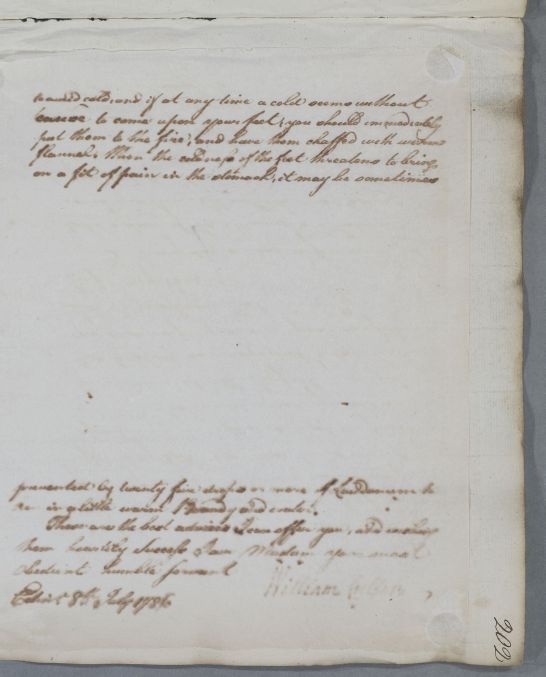 cold; and if at any time a cold seems without
to come upon your feet, you should immediately
put them to the fire, and have them chaffed with warm
flannel. When the coldness of the feet threatens to bring
on a fit of pain in the stomach, it may be sometimes
prevented by twenty five drops or more of Laudanum
in a little warm Brandy and water.
These are the best advices I can offer you, and wishing
them heartily success I am Madam your most
obedient humble servant
William Cullen
Edinr. 8th. July 1786
202